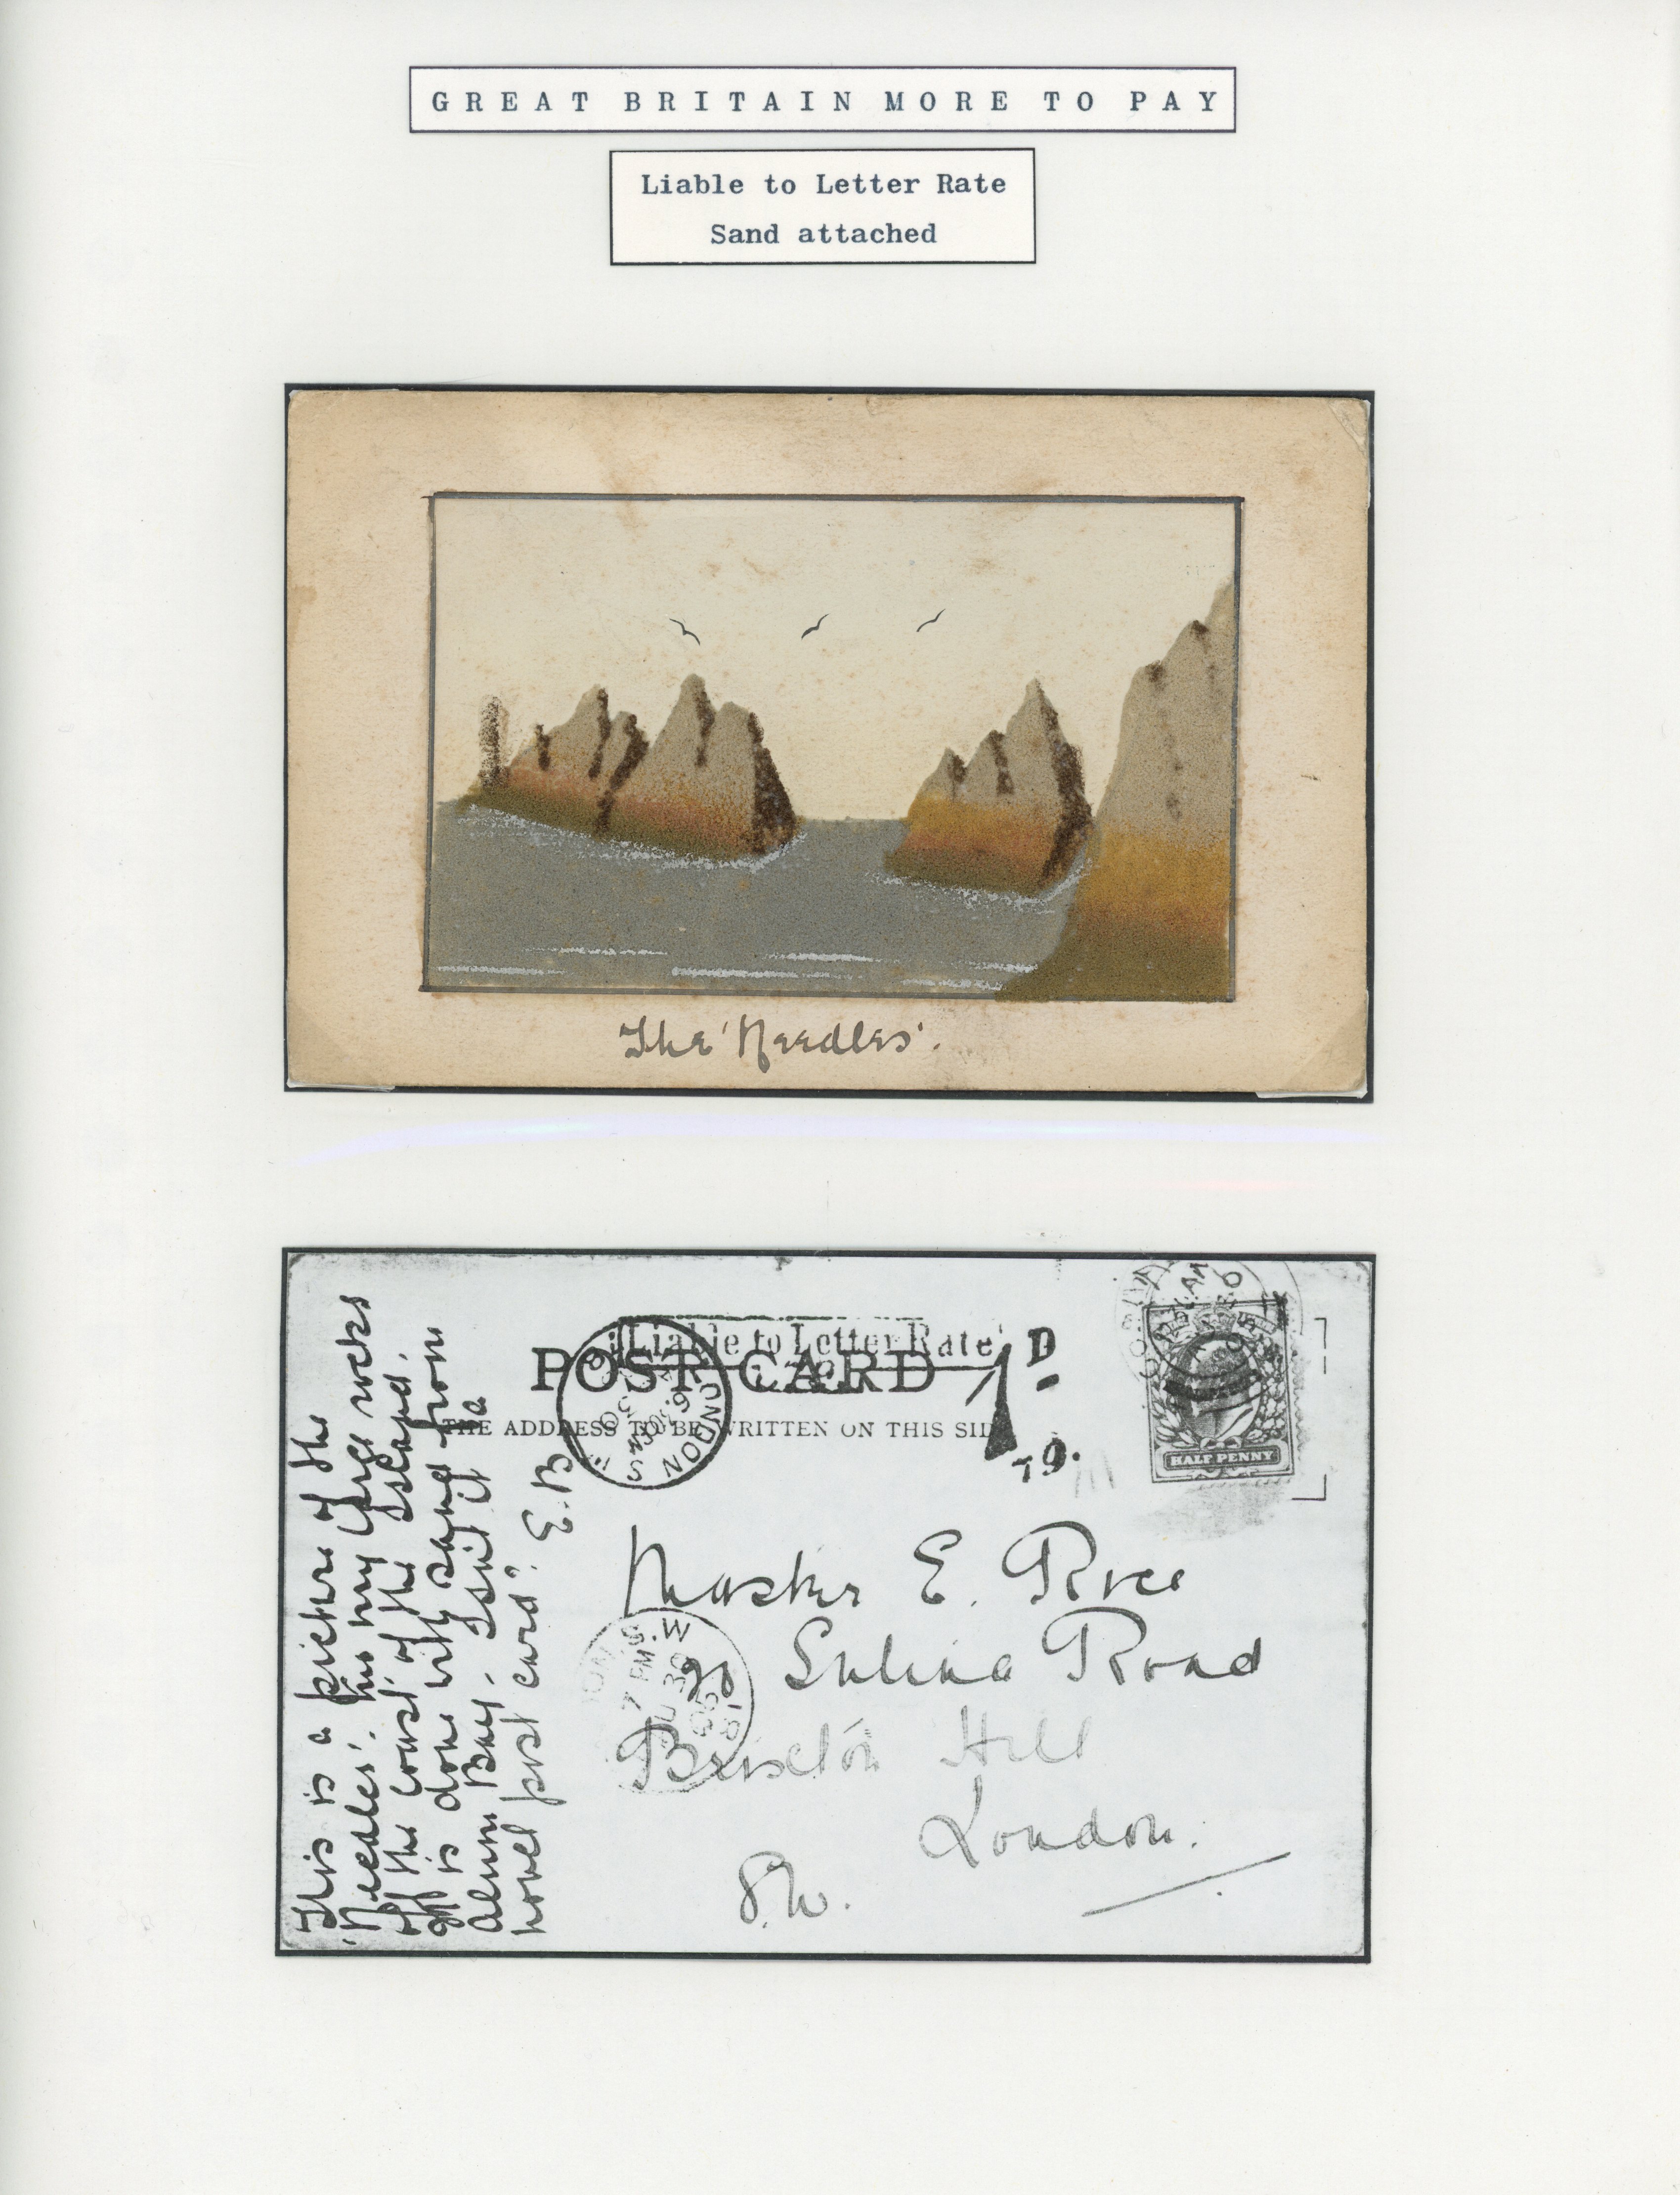 GREAT BRITAIN MORE TO PAY
Liable to Letter Rate
Sand attached
The 'Needles'.
Liable to Letter Rate
POST CARD
1D
THE ADDRESS TO BE WRITTEN ON THIS SIDE
79.
HALF PENNY
LONDON S.W
7 PM
30
05
81
This is a picture of the
'Needles'. two very large rocks
off the coast of the Island.
It is done with sand from
Alum Bay. Isn't it a
novel post card? E.B
Master E. Rice
20 Sulina Road
Brixton Hill
London.
S.W.